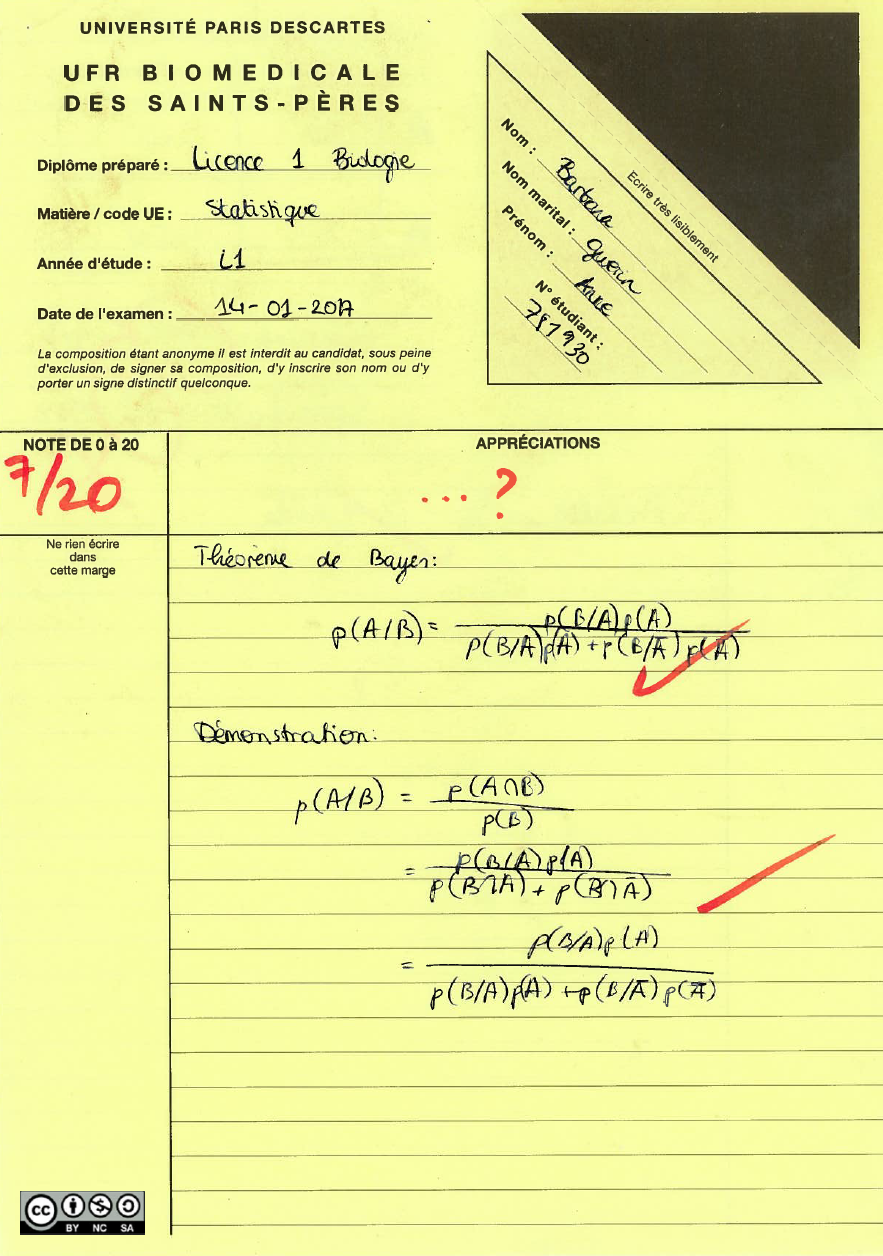 UNIVERSITÉ PARIS DESCARTES
UFR BIOMEDICALE
DES SAINTS-PÈRES
Diplôme préparé : Licence 1 Biologie
Matière / code UE : Statistique
Année d'étude : L1
Date de l'examen : 14-01-2017
La composition étant anonyme il est interdit au candidat, sous peine
d'exclusion, de signer sa composition, d'y inscrire son nom ou d'y
porter un signe distinctif quelconque.
Nom : Barbara
Nom marital : Guerin
Prénom : Anne
N° étudiant :
787930
Ecrire très lisiblement
NOTE DE 0 à 20
7/20
APPRÉCIATIONS
... ?
Ne rien écrire
dans
cette marge
Théorème de Bayes:
p(A/B) = p(B/A)p(A)
p(B/A)p(A) + p(B/Ā) p(Ā)
Démonstration:
p(A/B) = p(A∩B)
p(B)
= p(B/A)p(A)
p(B∩A) + p(B∩Ā)
= p(B/A)p(A)
p(B/A)p(A) + p(B/Ā)p(Ā)
cc BY NC SA